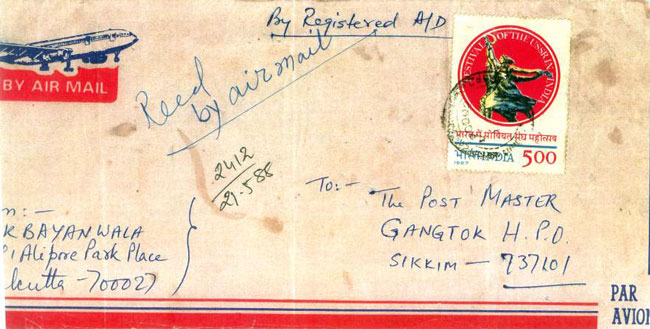 By Registered A/D
BY AIR MAIL
Recd
by airmail
FESTIVAL OF THE USSR IN INDIA
भारत में सोवियत संघ महोत्सव
भारत INDIA 500
1987
2412
27.5.88
To:-
The Post Master
GANGTOK H.P.O.
SIKKIM - 737101
m:-
K BAYANWALA
Alipore Park Place
lcutta - 700027
PAR
AVION